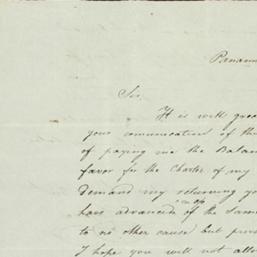 Panam
Sir,
It is with grea
your comunication of th
of paying me the Balan
favor for the Charter of my
demand my returning yo
has advanced of the Sam
to no other cause but
I hope you will not allo